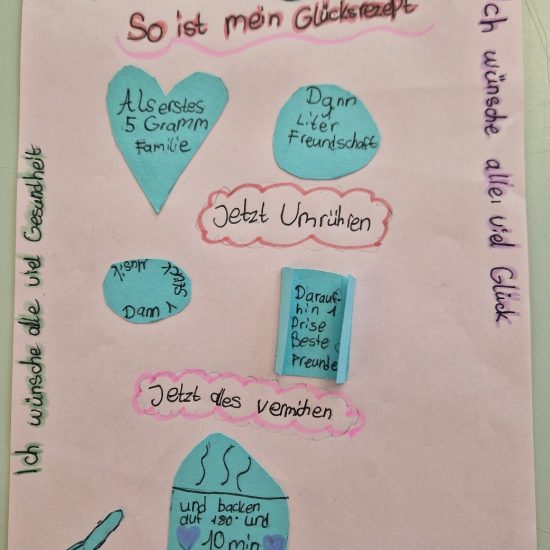 So ist mein Glücksrezept
Als erstes
5 Gramm
Familie
Dann
Liter
Freundschaft
Jetzt Umrühren
Dam 1
Stück
Musik
Darauf-
hin 1
Drise
Beste
Freunde
Jetzt alles vermöhen
und backen
auf 180° und
10 min
Ich wünsche alle viel Gesundheit
Ich wünsche allei viel Glück